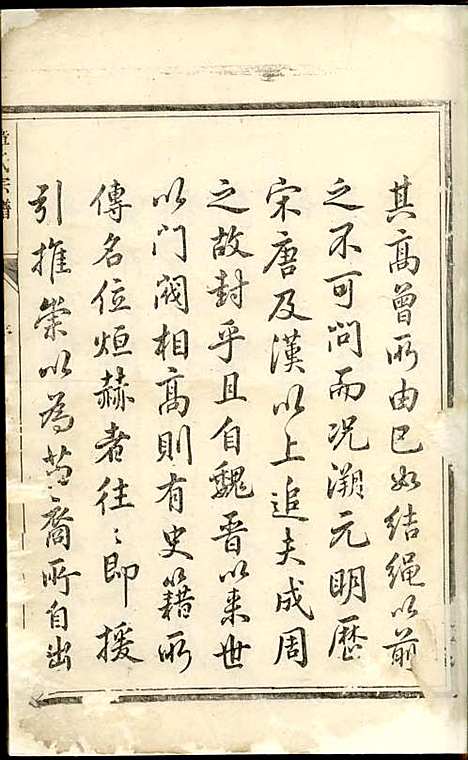 其高曾所由已如结绳以前
之不可問而况溯元明歷
宋唐及漢以上追夫成周
之故封乎且自魏晉以来世
以門閥相高則有史籍所
傳名位烜赫者往〻即援
引推崇以為苗裔所自出
氏宗譜